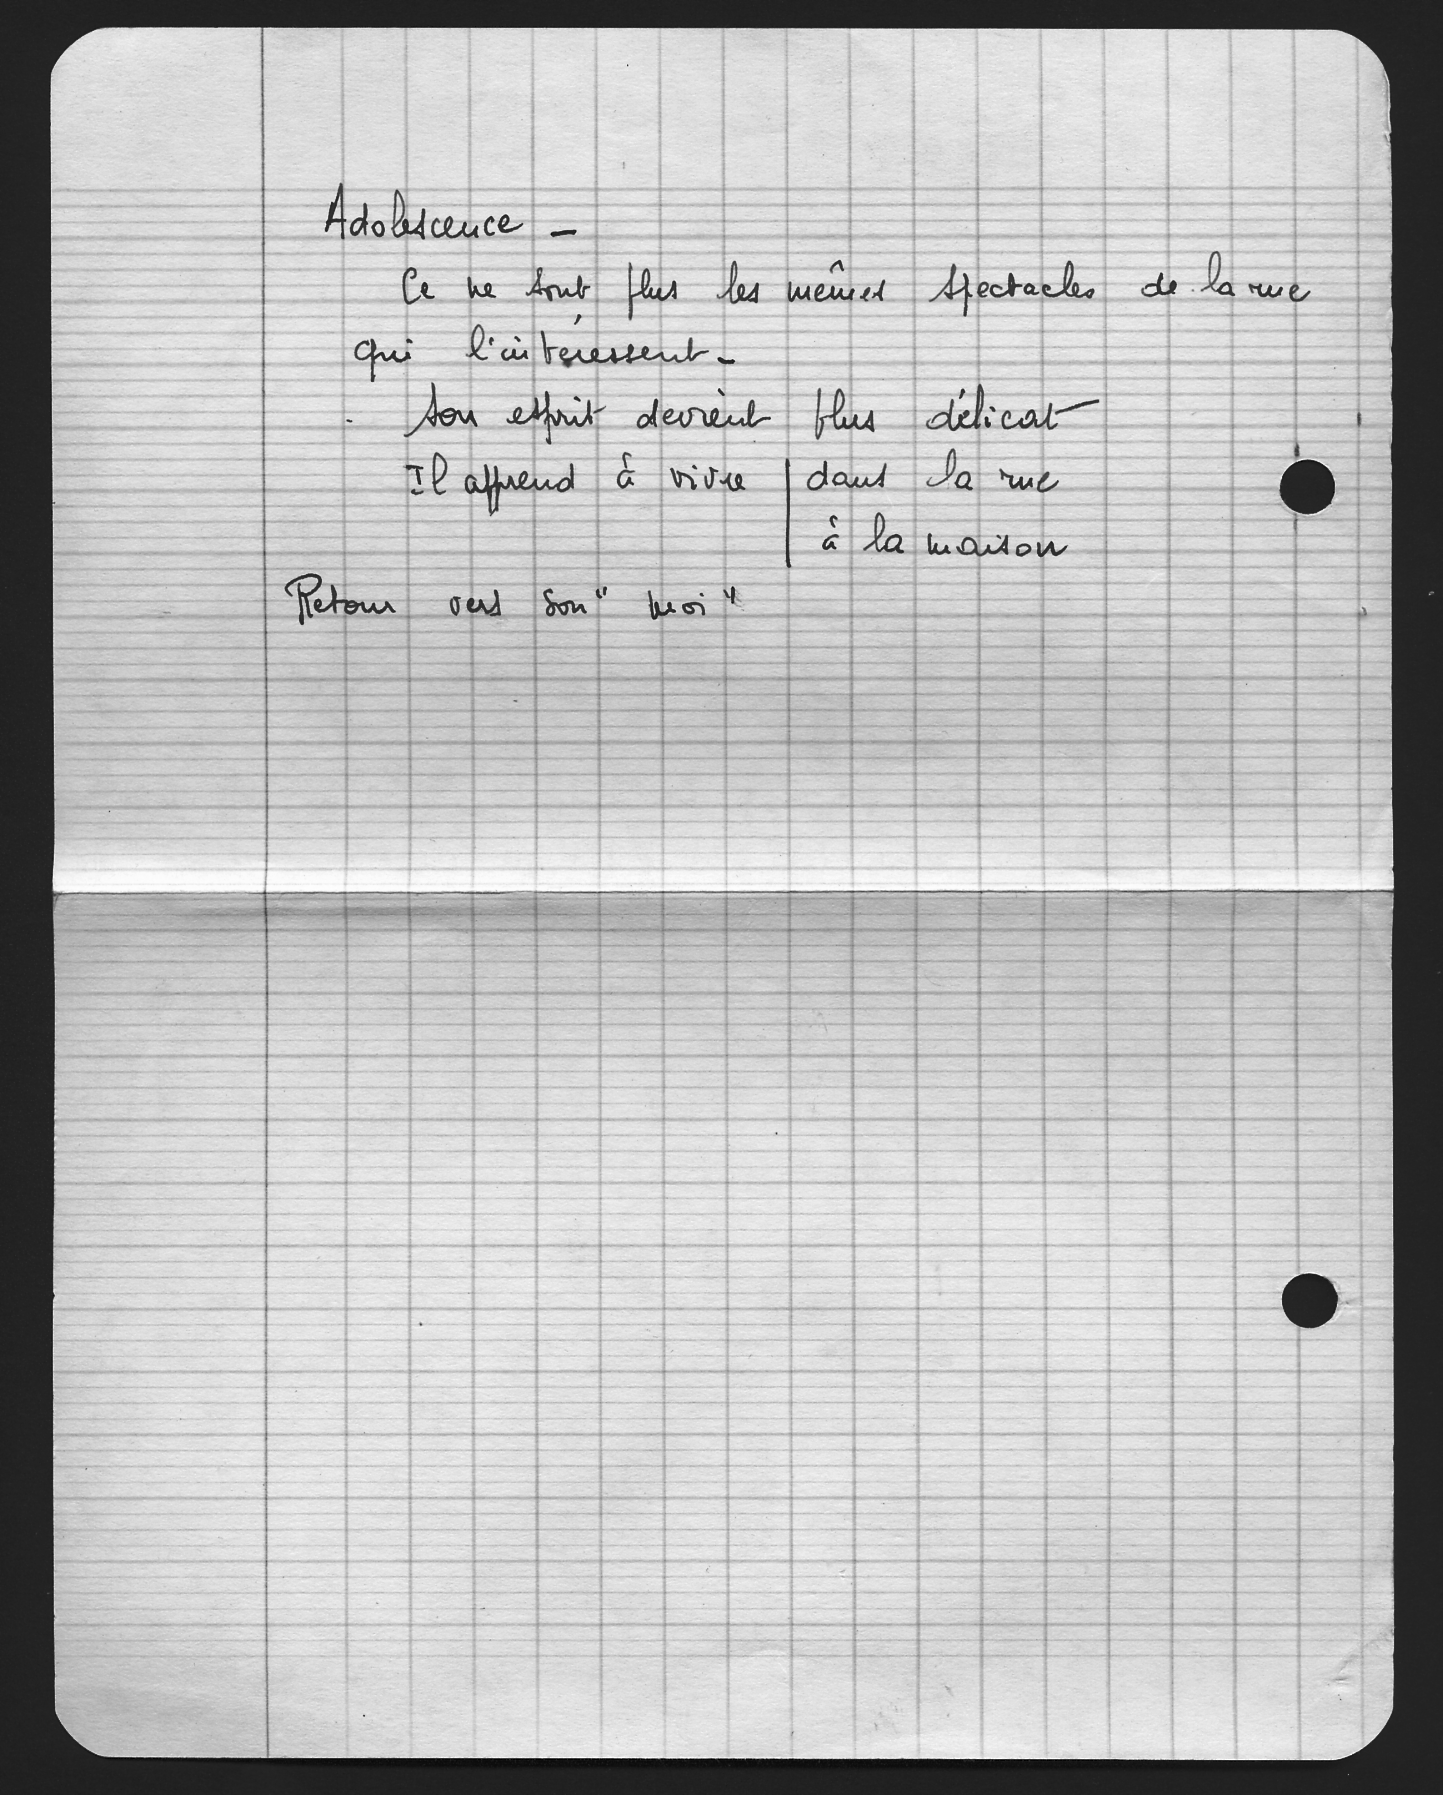 Adolescence -
Ce ne sont plus les mêmes spectacles de la rue
qui l'intéressent -
Son esprit devient plus délicat
Il apprend à vivre | dans la rue
à la maison
Retour vers son "moi"